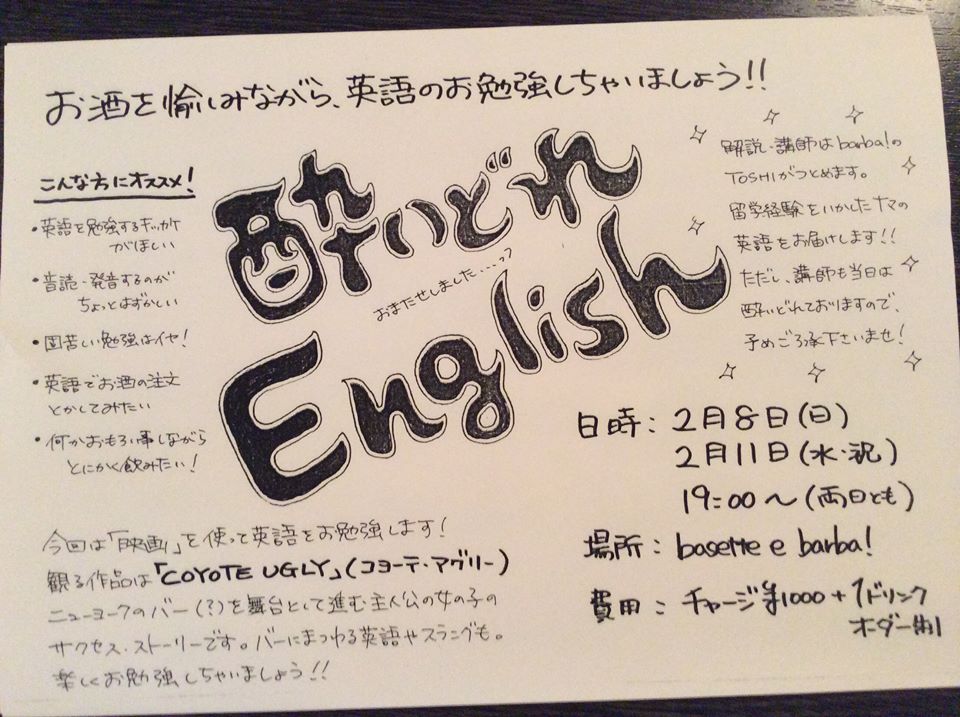 お酒を愉しみながら、英語のお勉強しちゃいましょう!!
こんな方にオススメ!
・英語を勉強するキッカケ
がほしい
・音読・発音するのが
ちょっとはずかしい
・固苦しい勉強はイヤ!
・英語でお酒の注文
とかしてみたい
・何かおもろい事しながら
とにかく飲みたい!
酔いどれ
おまたせしました.....??
English
解説・講師はbarba!の
TOSHIがつとめます。
留学経験をいかしたナマの
英語をお届けします!!
ただし、講師も当日は
酔いどれておりますので、
予めご了承下さいませ!
日時: 2月8日(日)
2月11日(水・祝)
19:00〜(両日とも)
場所: basette e barba!
費用: チャージ¥1000+1ドリンク
オーダー制
今回は「映画」を使って英語をお勉強します!
観る作品は「COYOTE UGLY」(コヨーテ・アグリー)
ニューヨークのバー(?)を舞台として進む主人公の女の子の
サクセス・ストーリーです。バーにまつわる英語やスラングも。
楽しくお勉強しちゃいましょう!!